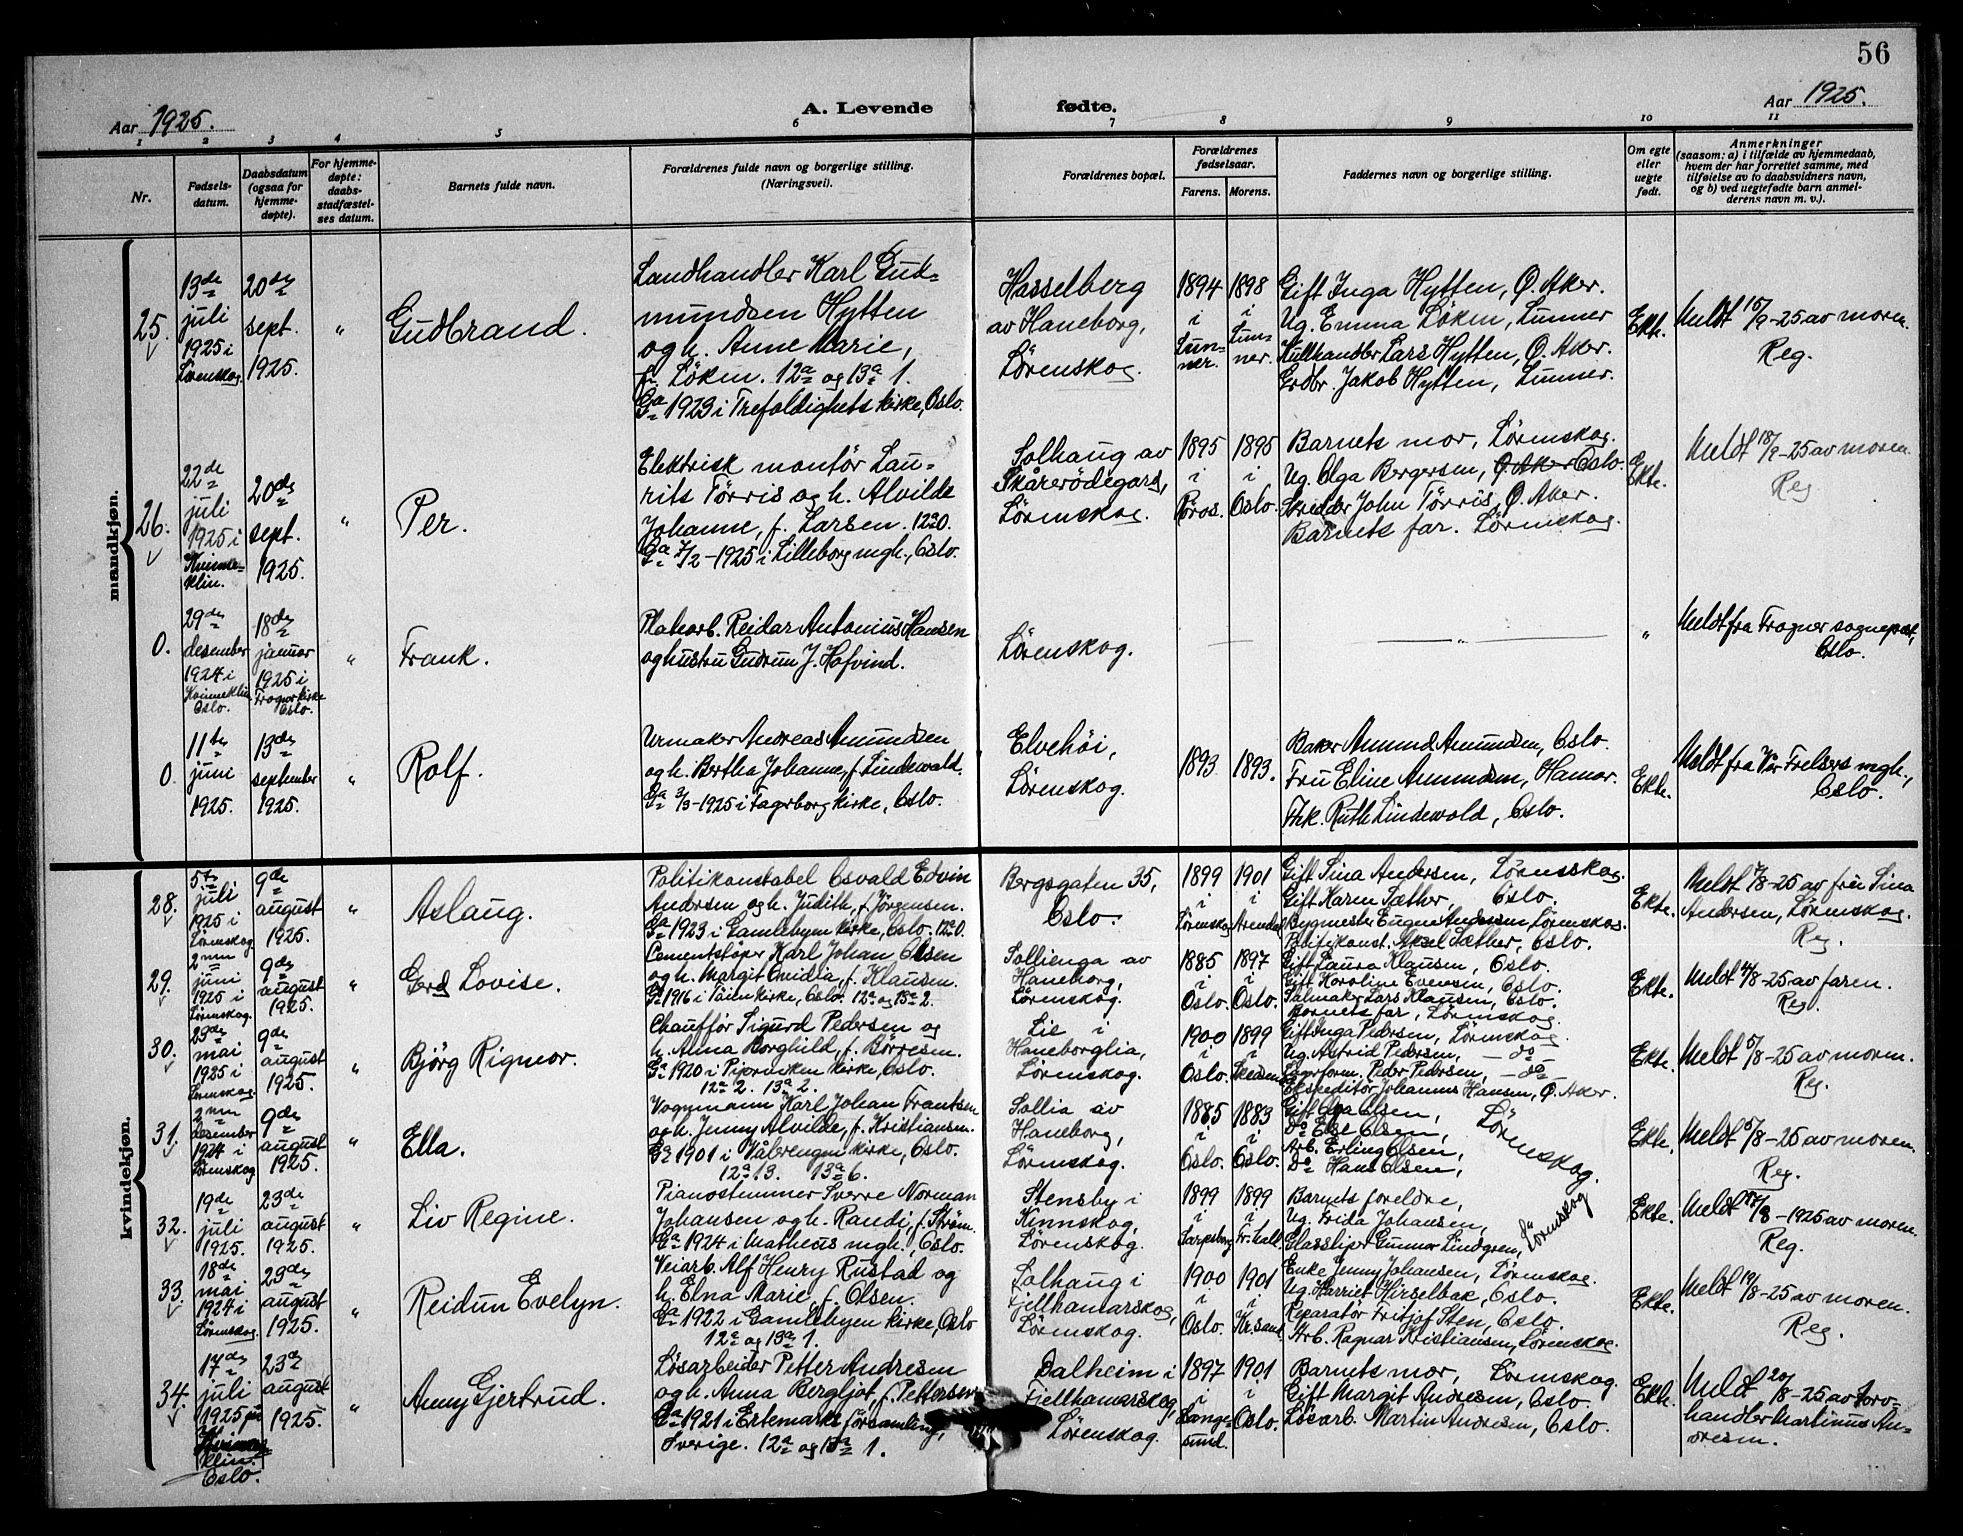 56
Aar 1925.
A. Levende fødte.
Aar 1925.
1 2 3 4 5 6 7 8 9 10 11
Nr.
Fødsels-
datum.
Daabsdatum
(ogsaa for
hjemme-
døpte).
For hjemme-
døpte:
daabs-
stadfæstel-
ses datum.
Barnets fulde navn.
Forældrenes fulde navn og borgerlige stilling.
(Næringsvei).
Forældrenes bopæl.
Forældrenes
fødselsaar.
Farens. Morens.
Faddernes navn og borgerlige stilling.
Om egte
eller
uegte
født.
Anmerkninger
(saasom: a) i tilfælde av hjemmedaab,
hvem der har forrettet samme, med
tilføielse av to daabsvidners navn,
og b) ved uegtefødte barn anmel-
derens navn m. v.).
mandkjøn.
25.
13de
juli
1925 i
Lørenskog.
20de
sept.
1925.
"
Gudbrand.
Landhandler Karl Gud-
mundsen Hytten
og h. Anne Marie,
f. Løken. 12a og 13a 1.
Ga 1923 i Trefoldighets kirke, Oslo.
Hasselberg
av Haneborg,
Lørenskog.
1894
i
Lun-
ner.
1898
i
Lun-
ner.
Gift Inga Hytten, Ø. Aker.
Ug. Emma Løken, Lunner
Kullhandler Lars Hytten, Ø. Aker.
Grdbr. Jakob Hytten, Lunner.
Ekte.
Meldt 15/9-25 av moren.
Reg.
26.
22de
juli
1925 i
Kvinne-
klin.
20de
sept.
1925.
"
Per.
Elektrisk montör Lau-
rits Törris og h. Alvilde
Johanne, f. Larsen. 12a 0.
Ga 7/2-1925 i Lilleborg mgh., Oslo.
Solhaug av
Skårerödegard,
Lörenskog.
1895
i
Röros.
1895
i
Oslo.
Barnets mor, Lörenskog.
Ug. Olga Bergersen, Ø. Aker Oslo.
Skredder John Törris, Ø. Aker.
Barnets far. Lörenskog.
Ekte.
Meldt 18/9-25 av moren.
Reg.
0.
29de
desember
1924 i
Kvinneklin
Oslo.
18de
januar
1925 i
Frogner kirke
Oslo.
"
Frank.
Platearb. Reidar Antonius Hansen
og hustru Gudrun J. Hofvind.
Lørenskog.
"
"
Meldt fra Frogner sogneprest,
Oslo.
0.
11te
juni
1925.
13de
september
1925.
"
Rolf.
Urmaker Andreas Amundsen
og h. Bertha Johanne, f. Lindewald.
Ga 3/3-1925 i Fagerborg kirke, Oslo.
Elvehöi,
Lörenskog.
1893
1893.
Baker Amund Amundsen, Oslo.
Fru Eline Amundsen, Hamar.
Frk. Ruth Lindewald, Oslo.
Ekte.
Meldt fra Vår Frelsers mgh.,
Oslo.
kvindekjøn.
28.
5te
juli
1925 i
Lörenskog
9de
august
1925.
"
Aslaug.
Politikonstabel Osvald Edvin
Andersen og h. Judith, f. Jörgensen.
Ga 1923 i Gamlebyen kirke, Oslo. 12a 0.
Bergsgaten 35,
Oslo.
1899
i
Lörenskog
1901
i
Arendal
Gift Lina Andersen, Lörenskog.
Gift Karen Sæther, Oslo.
Bygmester Eugen Andersen, Lörenskog.
Politikonst. Aksel Sæther, Oslo.
Ekte.
Meldt 5/8-25 av fru Lina
Andersen, Lörenskog.
Reg.
29.
2nen
juni
1925 i
Lörenskog.
9de
august
1925.
"
Gerd Lovise.
Cementstöper Karl Johan Olsen
og h. Margit Ovidia, f. Klausen.
Ga 1916 i Töien kirke, Oslo. 12a og 13a 2.
Sollienga av
Haneborg,
Lörenskog.
1885
i
Oslo.
1897
i
Oslo.
Gift Laura Klausen, Oslo.
Gift Karoline Evensen, Oslo.
Salmaker Lars Klausen, Oslo.
Barnets far, Lörenskog.
Ekte.
Meldt 4/8-25 av faren.
Reg.
30.
29de
mai
1925 i
Lørenskog
9de
august
1925.
"
Björg Rigmor.
Chauffør Sigurd Pedersen og
h. Anna Borghild, f. Börresen.
Ga 1920 i Piperviken kirke, Oslo.
12a 2. 13a 2.
Lie i
Haneborglia,
Lörenskog.
1900
i
Oslo.
1899
i
Skedsmo
Gift Inga Pedersen, Lörenskog.
Ug. Astrid Pedersen, – do –
Lagerform. Peder Pedersen, – do –
Ekspeditör Johannes Hansen, Ø. Aker.
Ekte.
Meldt 5/8-25 av moren.
Reg.
31.
2nen
desember
1924 i
Lörenskog
9de
august
1925.
"
Ella.
Vognmann Karl Johan Frantsen
og h. Jenny Alvilde, f. Kristiansen.
Ga 1901 i Vålerengen kirke, Oslo.
12a 13. 13a 6.
Sollia av
Haneborg,
Lörenskog.
1885
i
Oslo.
1883
i
Oslo.
Gift Olga Olsen,
Do Else Olsen,
Arb. Erling Olsen,
Do Hans Olsen,
Lörenskog.
Ekte.
Meldt 5/8-25 av moren.
Reg.
32.
19de
juli
1925.
23de
august
1925.
"
Liv Regine.
Pianostemmer Sverre Norman
Johansen og h. Randi, f. Ström.
Ga 1924 i Matheus mgh., Oslo.
Stensby i
Kinnskog,
Lörenskog.
1899
i
Sarpsborg
1899
i
Fr. hall.
Barnets foreldre,
Ug. Frida Johansen,
Glassliper Gunnar Lindgren,
Lörenskog
Ekte.
Meldt 17/8-1925 av moren.
Reg.
33.
18de
mai
1924 i
Lørenskog.
23de
august
1925.
"
Reidun Evelyn.
Veiarb. Alf Henry Rustad og
h. Elna Marie, f. Olsen.
Ga 1922 i Gamlebyen kirke, Oslo
12a og 13a 1.
Solhaug i
Fjellhamarskog,
Lörenskog.
1900
i
Oslo.
1901
i
Kr.sand
Enke Jenny Johansen, Lörenskog.
Ug. Harriet Hirselbak, Oslo.
Reparatør Fritjof Sten, Oslo.
Arb. Ragnar Kristiansen, Lörenskog.
Ekte.
Meldt 19/8-25 av moren.
Reg.
34.
17de
juli
1925 på
Kvinne
klin.
Oslo.
23de
august
1925.
"
Anny Gjertrud.
Løsarbeider Petter Andresen
og h. Anna Bergljot, f. Pettersen
Ga 1921 i Ertemarks forsamling,
Sverige. 12a og 13a 1.
Dalheim i
Fjellhamarskog,
Lörenskog.
1897
i
Lange-
sund.
1901
i
Oslo.
Barnets mor, Lörenskog.
Gift Margit Andresen, Oslo.
Lösarb. Martin Andresen, Oslo.
Ekte.
Meldt 20/8-25 av torv-
handler Martinus An-
dresen.